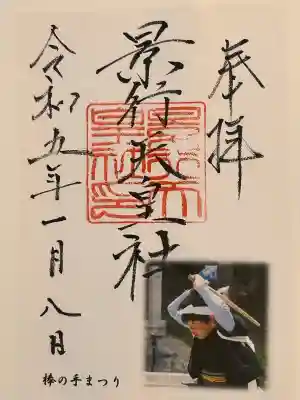 奉拝
景行天皇社
令和五年一月八日
棒の手まつり